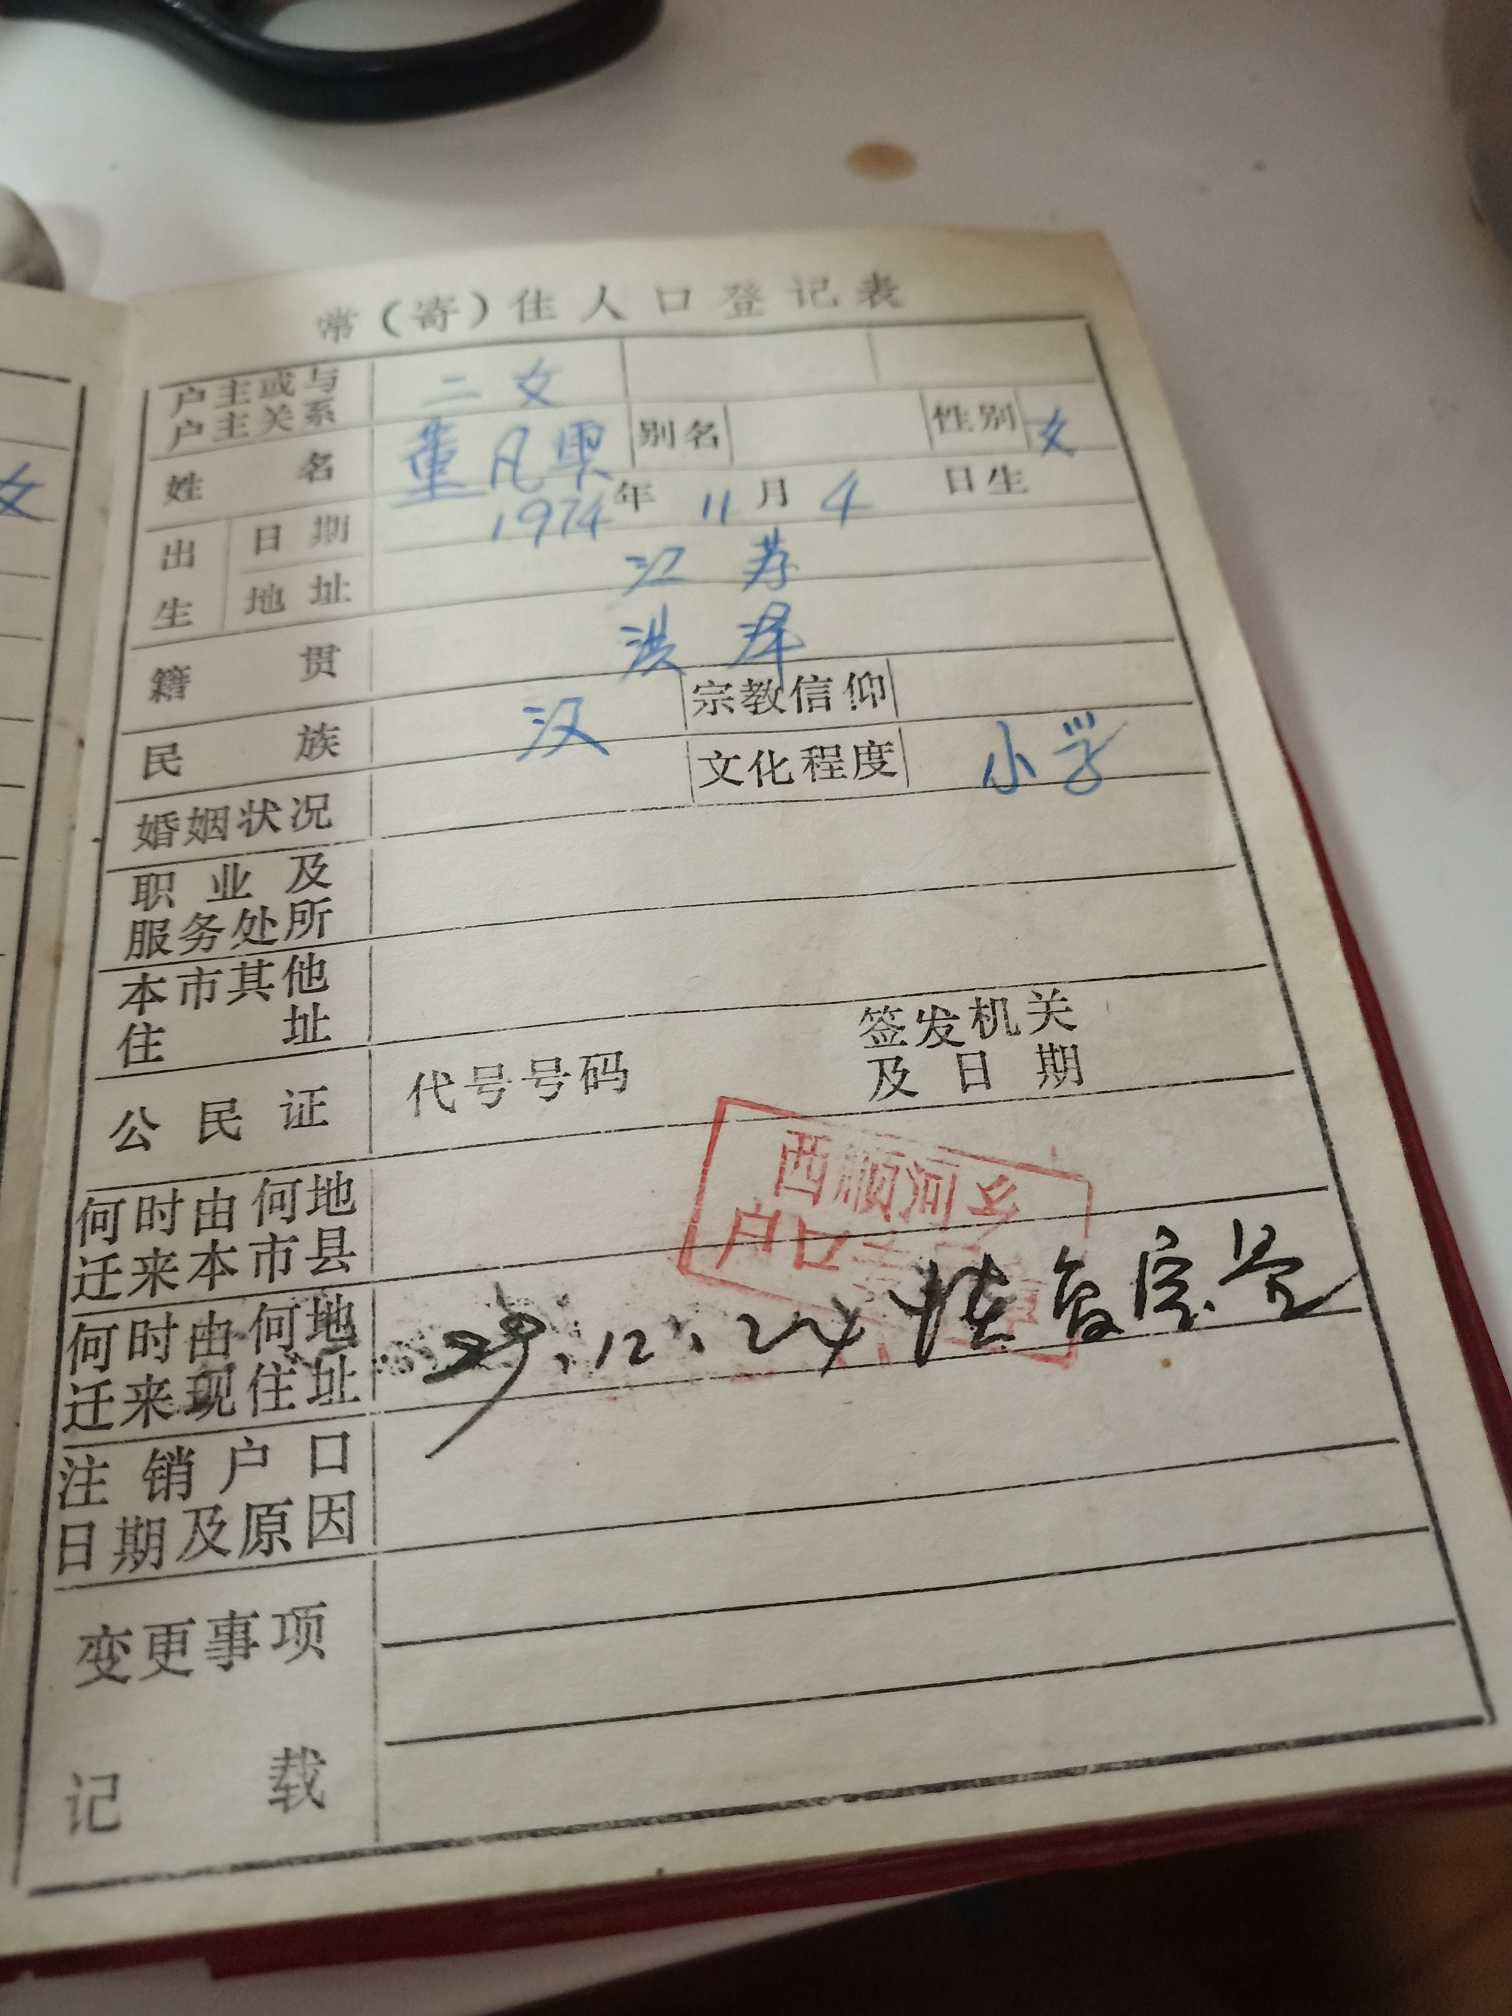 常（寄）住人口登记表
户主或与户主关系 二女
姓名 董凡 别名 性别 女
出生 日期 1974年 11月 4日生
地址 江苏
籍贯 洪泽
民族 汉 宗教信仰
婚姻状况 文化程度 小学
职业及服务处所
本市其他住址
公民证 代号号码 签发机关及日期
何时由何地迁来本市县
西顺河乡
户口
何时由何地迁来现住址 .12.24
注销户口日期及原因
变更事项
记载
女